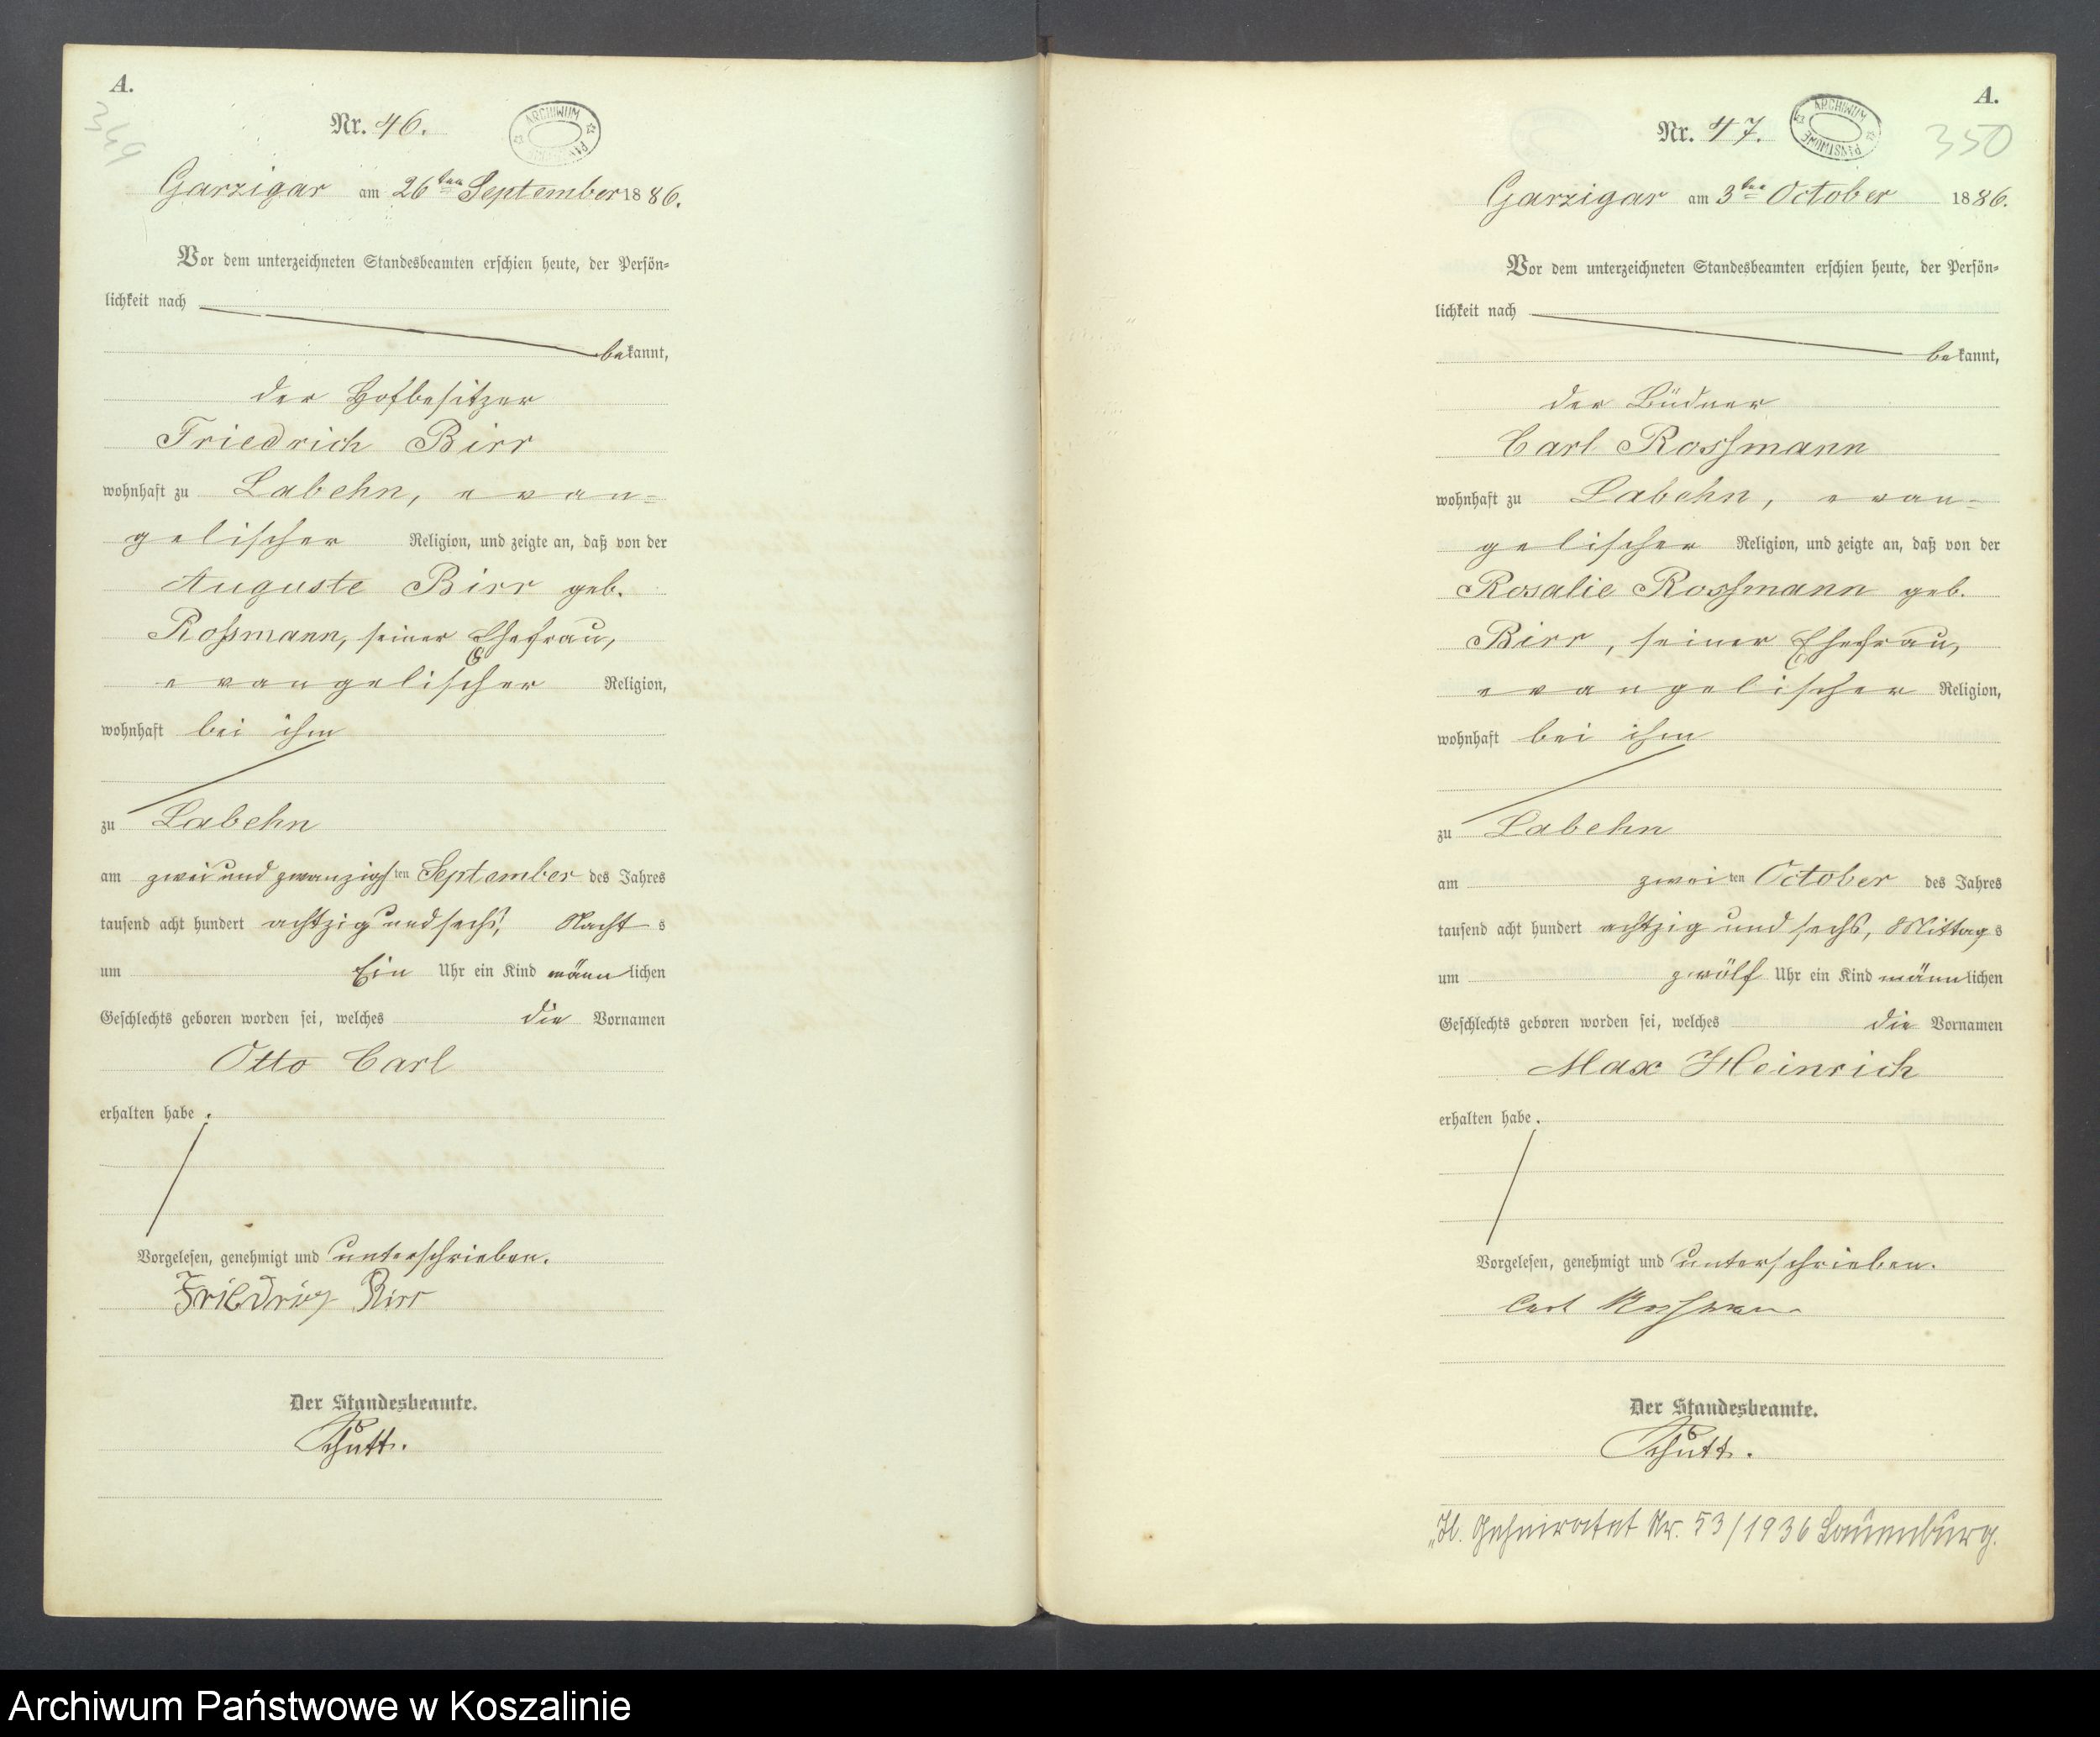 A.
349
Nr. 46.
ARCHIWUM
Garzigar am 26ten September 1886.
Vor dem unterzeichneten Standesbeamten erschien heute, der Persön-
lichkeit nach
bekannt,
der Hofbesitzer
Friedrich Birr
wohnhaft zu Labehn, evan-
gelischer Religion, und zeigte an, daß von der
Auguste Birr geb.
Roßmann, seiner Ehefrau,
evangelischer Religion,
wohnhaft bei ihm
zu Labehn
am zwei und zwanzigsten September des Jahres
tausend acht hundert achtzig und sechs, Nachts
um Ein Uhr ein Kind männlichen
Geschlechts geboren worden sei, welches die Vornamen
Otto Carl
erhalten habe.
Vorgelesen, genehmigt und unterschrieben.
Friedrich Birr
Der Standesbeamte.
Schutt.
A.
350
Nr. 47.
ARCHIWUM PAŃSTWOWE
Garzigar am 3ten October 1886.
Vor dem unterzeichneten Standesbeamten erschien heute, der Persön-
lichkeit nach
bekannt,
der Büdner
Carl Rossmann
wohnhaft zu Labehn, evan-
gelischer Religion, und zeigte an, daß von der
Rosalie Rossmann geb.
Birr, seiner Ehefrau,
evangelischer Religion,
wohnhaft bei ihm
zu Labehn
am zweiten October des Jahres
tausend acht hundert achtzig und sechs, Mittags
um zwölf Uhr ein Kind männlichen
Geschlechts geboren worden sei, welches die Vornamen
Max Heinrich
erhalten habe.
Vorgelesen, genehmigt und unterschrieben.
Carl Rossmann
Der Standesbeamte.
Schutt.
Geheiratet Nr. 53/1936 Lauenburg.
Archiwum Państwowe w Koszalinie